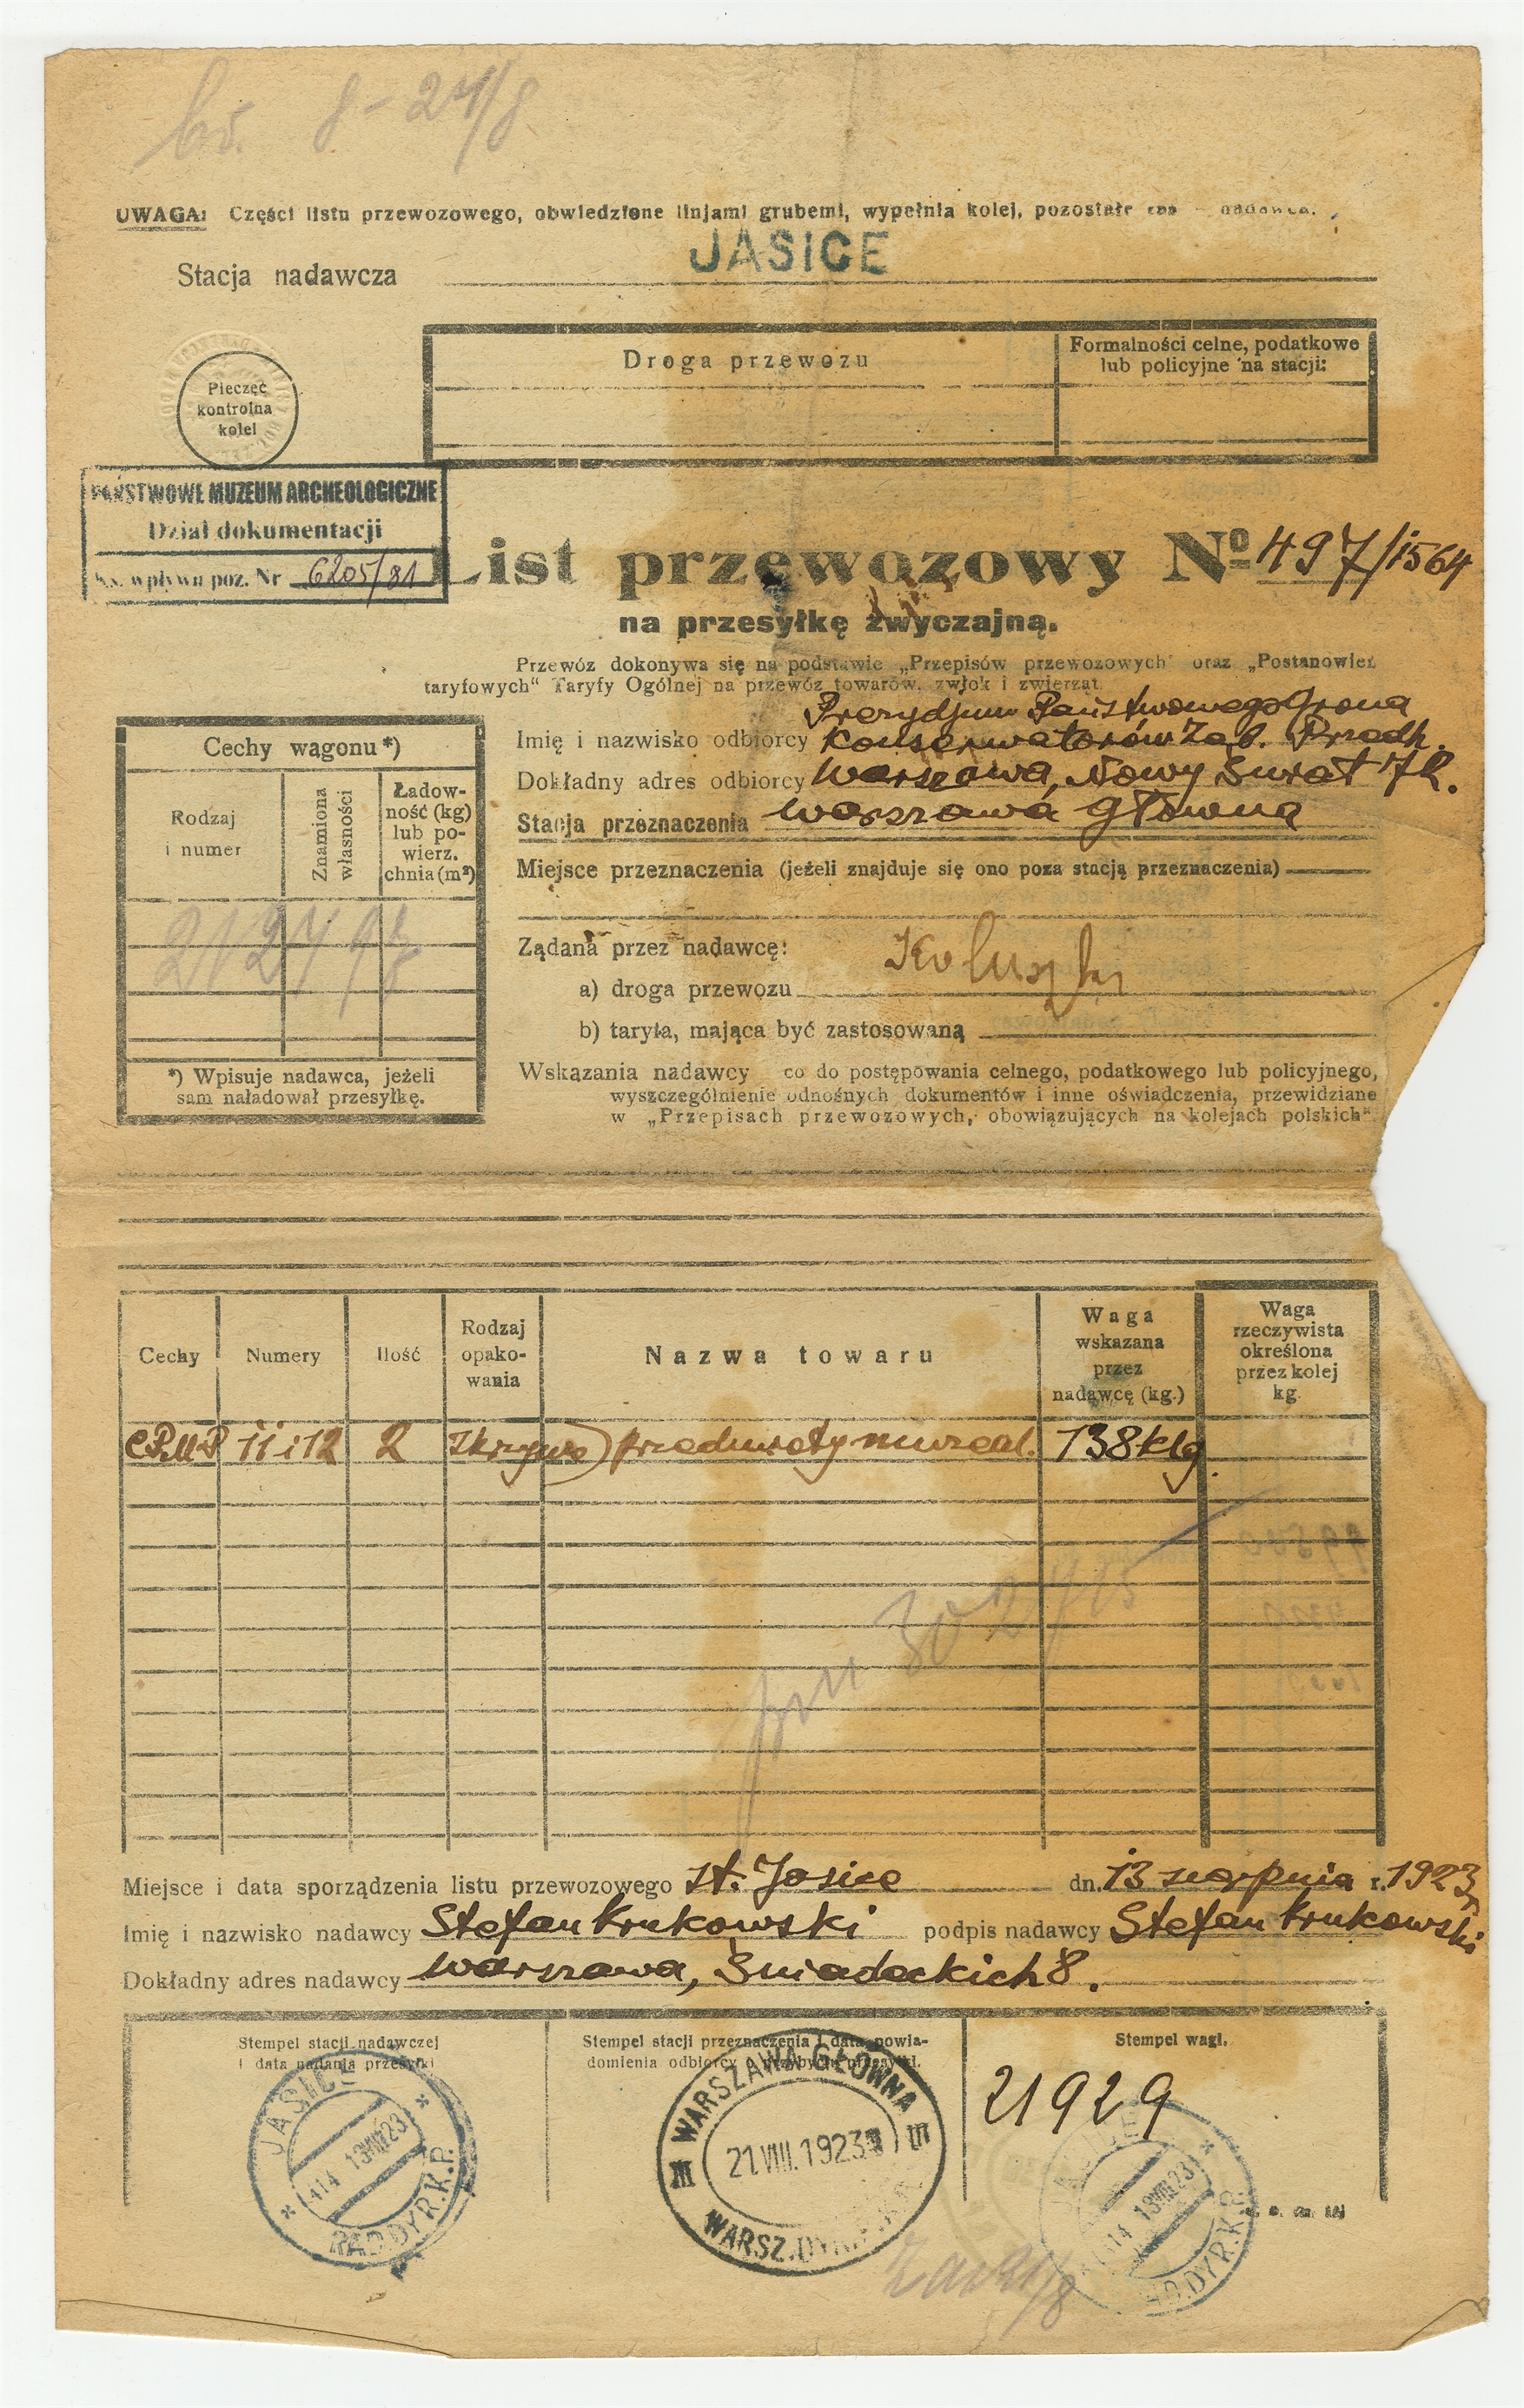 8-24/8
UWAGA: Części listu przewozowego, obwiedzione linjami grubemi, wypełnia kolej, pozostałe zaś – nadawca.
JASICE
Stacja nadawcza
Droga przewozu
Formalności celne, podatkowe
lub policyjne na stacji:
Pieczęć
kontrolna
kolei
PAŃSTWOWE MUZEUM ARCHEOLOGICZNE
Dział dokumentacji
Ks. wpływu poz. Nr 6205/81
List przewozowy Nº 497/1564
na przesyłkę zwyczajną.
Przewóz dokonywa się na podstawie „Przepisów przewozowych" oraz „Postanowień
taryfowych" Taryfy Ogólnej na przewóz towarów, zwłok i zwierząt.
Prezydjum Państwowego Grona
Imię i nazwisko odbiorcy Konserwatorów Zab. Przedh.
Dokładny adres odbiorcy Warszawa, Nowy Świat 72.
Stacja przeznaczenia Warszawa główna
Miejsce przeznaczenia (jeżeli znajduje się ono poza stacją przeznaczenia)
Cechy wagonu*)
Rodzaj
i numer
Znamiona
własności
Ładow-
ność (kg)
lub po-
wierz.
chnia (m²)
*) Wpisuje nadawca, jeżeli
sam naładował przesyłkę.
Żądana przez nadawcę:
a) droga przewozu Koluszki
b) taryfa, mająca być zastosowaną
Wskazania nadawcy co do postępowania celnego, podatkowego lub policyjnego,
wyszczególnienie odnośnych dokumentów i inne oświadczenia, przewidziane
w „Przepisach przewozowych, obowiązujących na kolejach polskich".
Cechy
Numery
Ilość
Rodzaj
opako-
wania
Nazwa towaru
Waga
wskazana
przez
nadawcę (kg.)
Waga
rzeczywista
określona
przez kolej
kg.
11 i 12 2 skrzynie przedmioty muzeal. 138 klg.
Miejsce i data sporządzenia listu przewozowego st. Jasice dn. 13 sierpnia r. 1923
Imię i nazwisko nadawcy Stefan Krukowski podpis nadawcy Stefan Krukowski
Dokładny adres nadawcy Warszawa, Śniadeckich 8.
Stempel stacji nadawczej
i data nadania przesyłki
Stempel stacji przeznaczenia i data powia-
domienia odbiorcy o przybyciu przesyłki.
Stempel wagi.
21929
JASICE
414 13 VIII 23
RAD.DYR.K.P.
WARSZAWA GŁÓWNA
21.VIII.1923
WARSZ.DYR.K.P.
JASICE
414 13 VIII 23
RAD.DYR.K.P.